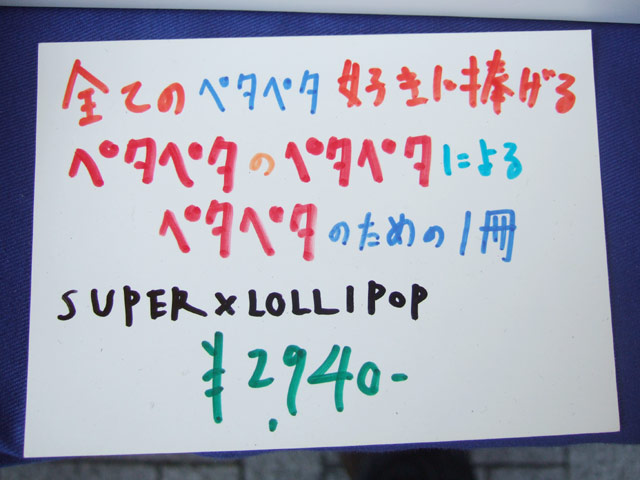 全てのペタペタ好きに捧げる
ペタペタのペタペタによる
ペタペタのための1冊
SUPER×LOLLIPOP
¥2,940-